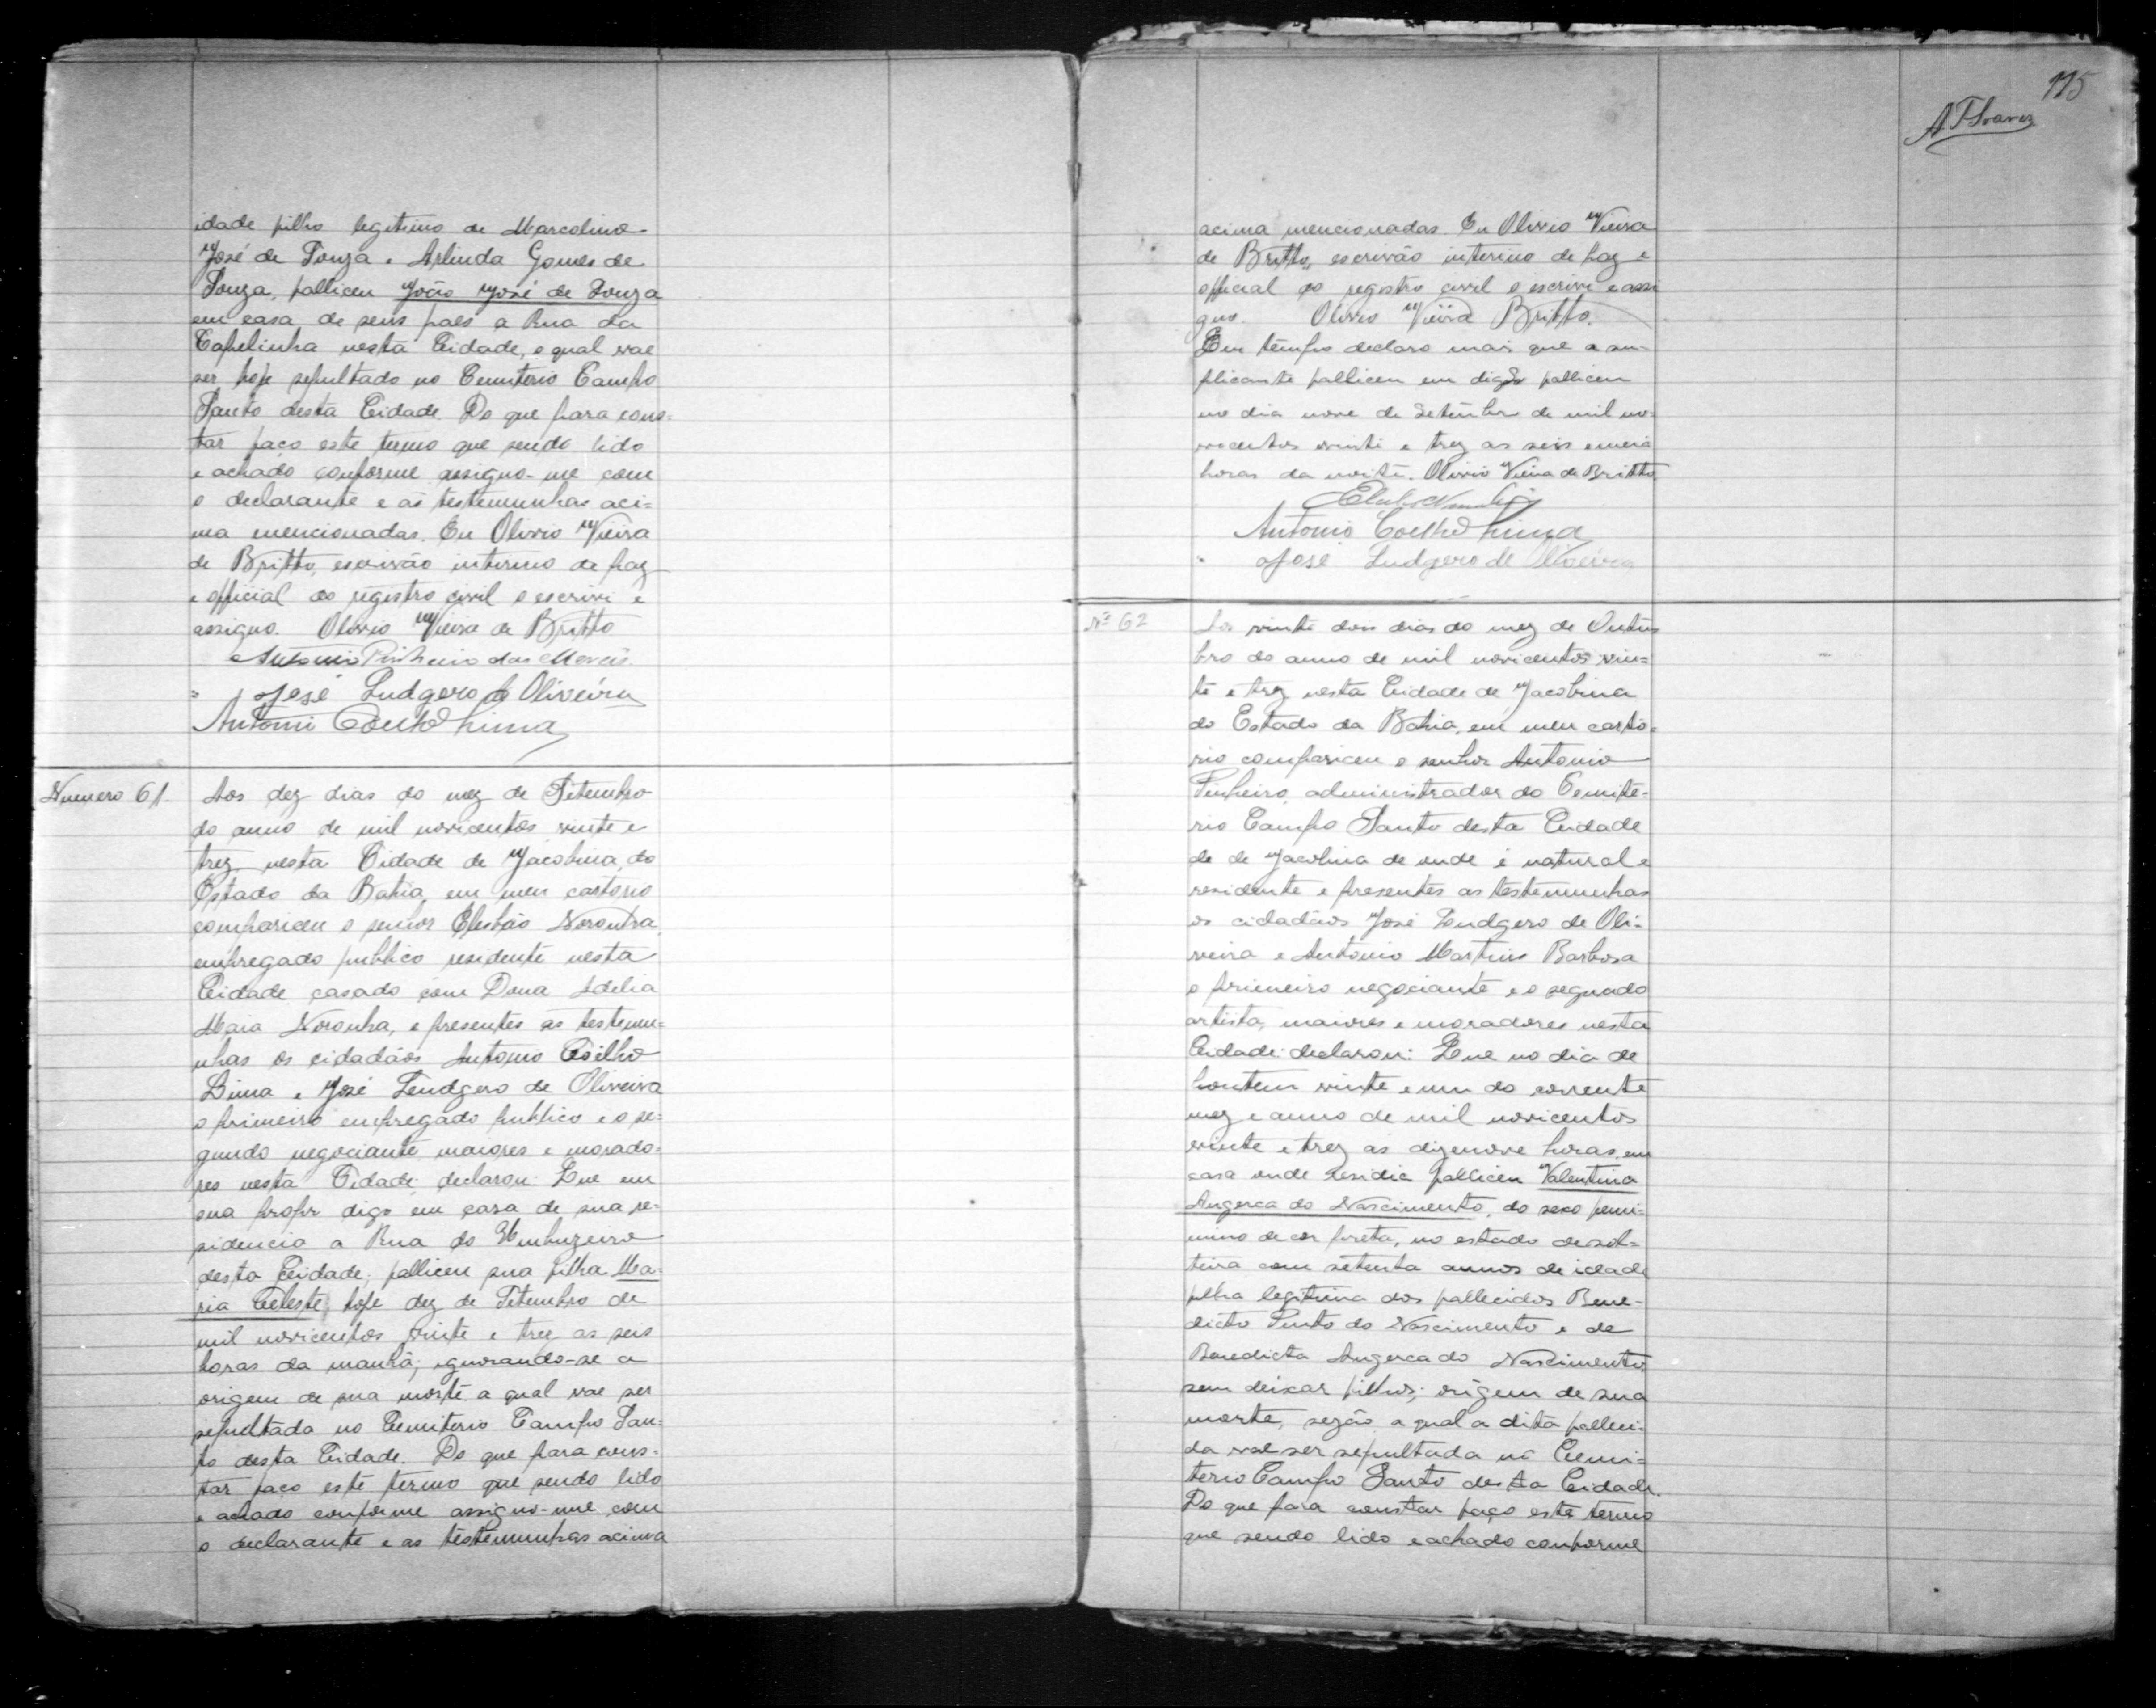 idade filho legitimo de Marcolino
José de Souza e Arlinda Gomes de
Souza, falliceu João José de Souza
em casa de seus paes a Rua da
Capelinha nesta Cidade, o qual vae
ser hoje sepultado no Cemiterio Campo
Santo desta Cidade. Do que para cons=
tar faço este termo que sendo lido
e achado conforme assigno-me com
o declarante e as testemunhas aci=
ma mencionadas. Eu Olivio Vieira
de Britto, escrivão interino de paz
e official do registro civil o escrivi e
assigno. Olivio Vieira de Britto
Antonio Pinheiro das Mercês.
José Ludgero de Oliveira
Antonio Coelho Lima
Numero 61.
Aos dez dias do mez de Setembro
do anno de mil novicentos vinte e
trez, nesta Cidade de Jacobina, do
Estado da Bahia, em meu cartorio
compariceu o senhor Elesbão Noronha,
empregado publico residente nesta
Cidade casado com Dona Adelia
Maia Noronha, e presentes as testemu=
nhas os cidadãos Antonio Coêlho
Lima e José Lendgero de Oliveira
o primeiro empregado publico e o se=
gundo negociante, maiores e morado=
res nesta Cidade; declarou: Que em
sua propr digo em casa de sua re=
sidencia a Rua do Umbuzeiro
desta Cidade, falliceu sua filha Ma=
ria Celeste, hoje dez de Setembro de
mil novicentos vinte e trez as seis
horas da manhã; ignorando-se a
origem de sua morte a qual vae ser
sepultada no Cemiterio Campo San=
to desta Cidade. Do que para cons=
tar faço este termo que sendo lido
e achado conforme assigno-me com
o declarante e as testemunhas acima
115
A. T. Soares
acima mencionadas. Eu Olivio Vieira
de Britto, escrivão interino de paz e
official do registro civil o escrivi e assi
gno. Olivio Vieira Britto.
Em tempo declaro mais que a su=
plicante falliceu em digo falliceu
no dia nove de Setembro de mil no=
vecentos vinti e trez as seis e meia
horas da noite. Olivio Vieira de Britto
Antonio Coelho Lima
José Ludgero de Oliveira
Nº 62
Aos vinte dois dias do mez de Outu
bro do anno de mil novicentos vin=
te e trez nesta Cidade de Jacobina
do Estado da Bahia, em meu carto=
rio compariceu o senhor Antonio
Pinheiro, administrador do Cemite=
rio Campo Santo desta Cidade
de de Jacobina de onde é natural e
residente e presentes as testemunhas
os cidadãos José Lendgero de Oli=
veira e Antonio Martins Barbosa
o primeiro negociante e o segundo
artista, maiores e moradores nesta
Cidade declarou: Que no dia de
hontem vinte e um do corrente
mez e anno de mil novicentos
vinte e trez as dizenove horas, em
casa onde residia falliceu Valentina
Angerca do Nascimento, do sexo femi=
nino de cor preta, no estado de sol=
teira com setenta annos de idade
filha legitima dos fallecidos Bene=
dicto Pinto do Nascimento e de
Benedicta Angerca do Nascimento,
sem deixar filhos; origem de sua
morte, sezão, a qual a dita falleci=
da vae ser sepultada no Cemi=
terio Campo Santo desta Cidade.
Do que para constar faço este termo
que sendo lido e achado conforme